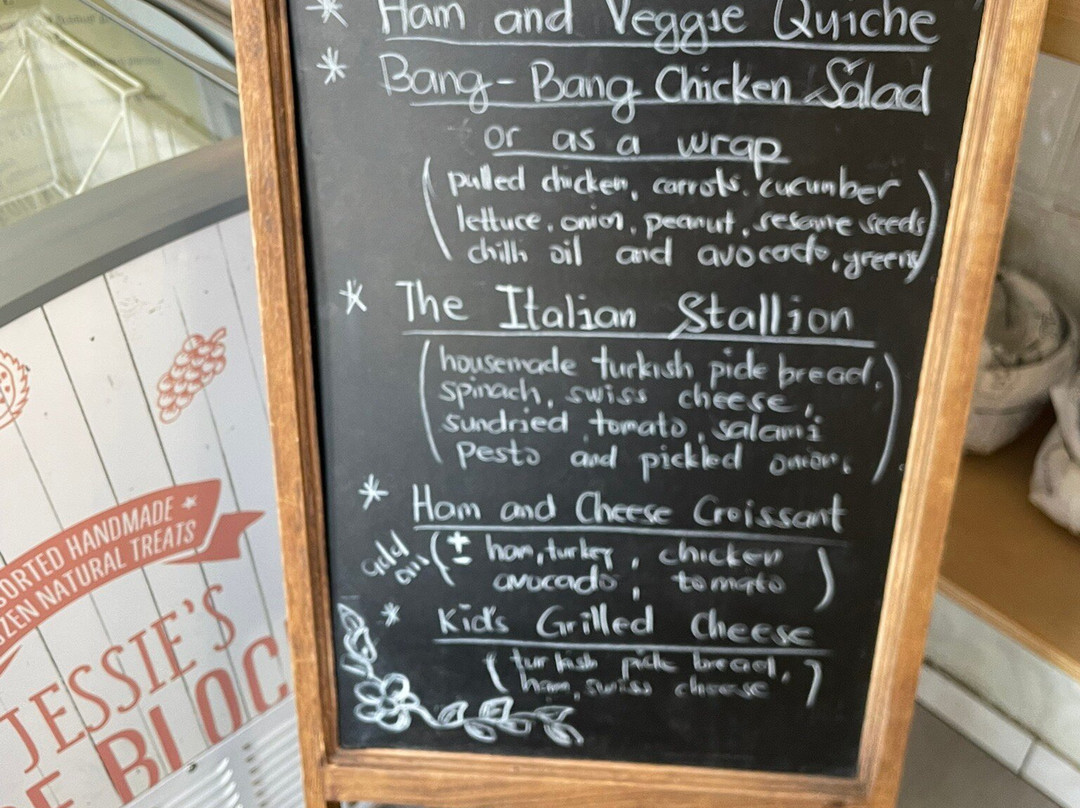 * Ham and Veggie Quiche
* Bang-Bang Chicken Salad
or as a wrap
(pulled chicken, carrots, cucumber
lettuce, onion, peanut, sesame seeds
chilli oil and avocado, greens)
* The Italian Stallion
(housemade turkish pide bread,
spinach, swiss cheese,
sundried tomato, salami
pesto and pickled onion.)
* Ham and Cheese Croissant
add on (± ham, turkey, chicken
avocado, tomato)
* Kid's Grilled Cheese
(turkish pide bread,
ham, swiss cheese)
SORTED HANDMADE
ZEN NATURAL TREATS
JESSIE'S
E BLOC